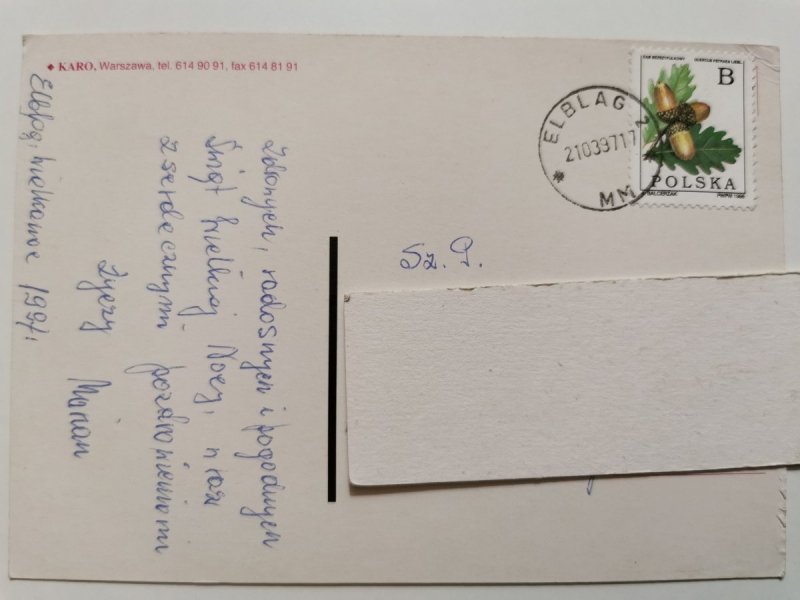 ◆ KARO, Warszawa, tel. 614 90 91, fax 614 81 91
Elbląg, Wielkanoc 1997.
Zdrowych, radosnych i pogodnych
Świąt Wielkiej Nocy, wraz
z serdecznymi pozdrowieniami
życzy
Marian
ELBLĄG 2
21039717
* MM
DĄB BEZSZYPUŁKOWY QUERCUS PETRAEA LIEBL.
B
POLSKA
BALCERZAK
Sz. P.